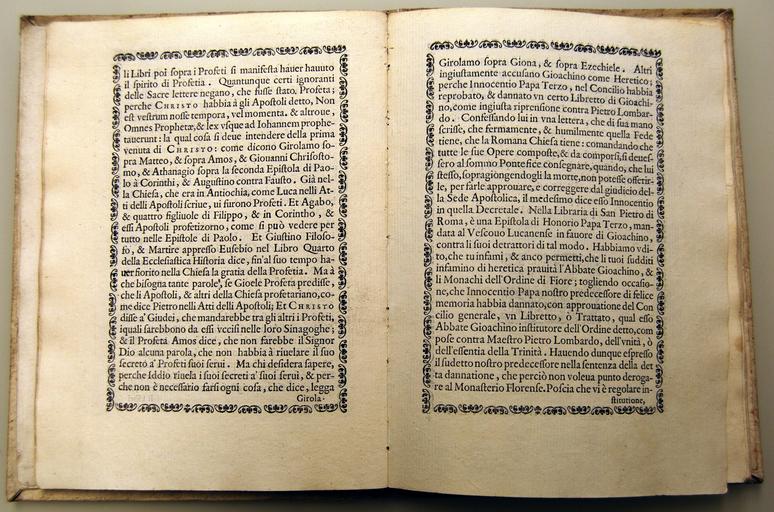 li Libri poi sopra i Profeti si manifesta hauer hauuto
il spirito di Profetia. Quantunque certi ignoranti
delle Sacre lettere negano, che fusse stato, Profeta;
perche CHRISTO habbia à gli Apostoli detto, Non
est vestrum nosse tempora, vel momenta. & altroue,
Omnes Prophetæ, & lex vsque ad Iohannem prophe-
tauerunt: la qual cosa si deue intendere della prima
venuta di CHRISTO: come dicono Girolamo so-
pra Matteo, & sopra Amos, & Giouanni Chrisosto-
mo, & Athanagio sopra la seconda Epistola di Pao-
lo à Corinthi, & Augustino contra Fausto. Già nel-
la Chiesa, che era in Antiochia, come Luca nelli At-
ti delli Apostoli scriue, ui furono Profeti. Et Agabo,
& quattro figliuole di Filippo, & in Corintho, &
essi Apostoli profetizorno, come si può vedere per
tutto nelle Epistole di Paolo. Et Giustino Filoso-
fo, & Martire appresso Eusebio nel Libro Quarto
della Ecclesiastica Historia dice, fin'al suo tempo ha-
uer fiorito nella Chiesa la gratia della Profetia. Ma à
che bisogna tante parole, se Gioele Profeta predisse,
che li Apostoli, & altri della Chiesa profetariano, co-
me dice Pietro nelli Atti delli Apostoli; Et CHRISTO
disse a' Giudei, che mandarebbe tra gli altri i Profeti,
iquali sarebbono da essi vccisi nelle loro Sinagoghe;
& il Profeta Amos dice, che non farebbe il Signor
Dio alcuna parola, che non habbia à riuelare il suo
secreto a' Profeti suoi serui. Ma chi desidera sapere,
perche Iddio riuela i suoi secreti a' suoi serui, & per-
che non è necessario farsi ogni cosa, che dice, legga
Girola-
Girolamo sopra Giona, & sopra Ezechiele. Altri
ingiustamente accusano Gioachino come Heretico;
perche Innocentio Papa Terzo, nel Concilio habbia
reprobato, & dannato vn certo Libretto di Gioachi-
no, come ingiusta riprensione contra Pietro Lombar-
do. Confessando lui in vna lettera, che di sua mano
scrisse, che fermamente, & humilmente quella Fede
tiene, che la Romana Chiesa tiene: comandando che
tutte le sue Opere composte, & da comporsi, si deues-
sero al sommo Pontefice consegnare, quando, che lui
stesso, sopragiongendogli la morte, non potesse offerir-
le, per farle approuare, e correggere dal giudicio del-
la Sede Apostolica, il medesimo dice esso Innocentio
in quella Decretale. Nella Libraria di San Pietro di
Roma, è una Epistola di Honorio Papa Terzo, man-
data al Vescouo Lucanense in fauore di Gioachino,
contra li suoi detrattori di tal modo. Habbiamo vdi-
to, che tu infami, & anco permetti, che li tuoi sudditi
infamino di heretica prauità l'Abbate Gioachino, &
li Monachi dell'Ordine di Fiore; togliendo occasio-
ne, che Innocentio Papa nostro predecessore di felice
memoria habbia dannato, con approuatione del Con
cilio generale, vn Libretto, ò Trattato, qual esso
Abbate Gioachino institutore dell'Ordine detto, com
pose contra Maestro Pietro Lombardo, dell'vnità, ò
dell'essentia della Trinità. Hauendo dunque espresso
il sudetto nostro predecessore nella sentenza della det
ta dannatione, che perciò non voleua punto deroga-
re al Monasterio Florense. Poscia che vi è regolare in-
stitutione,